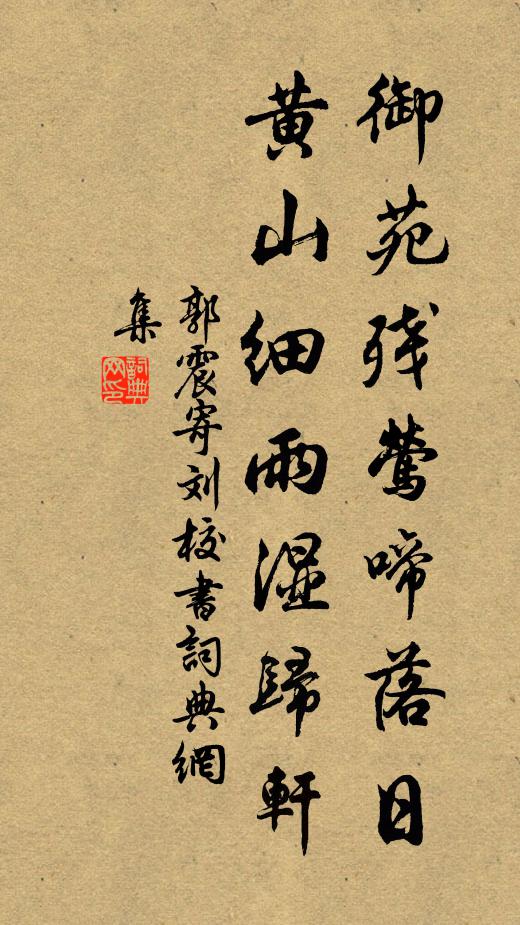 御苑残莺啼落日
黄山细雨湿歸軒
郭震寄刘校書詞典網
集
詞典
网印